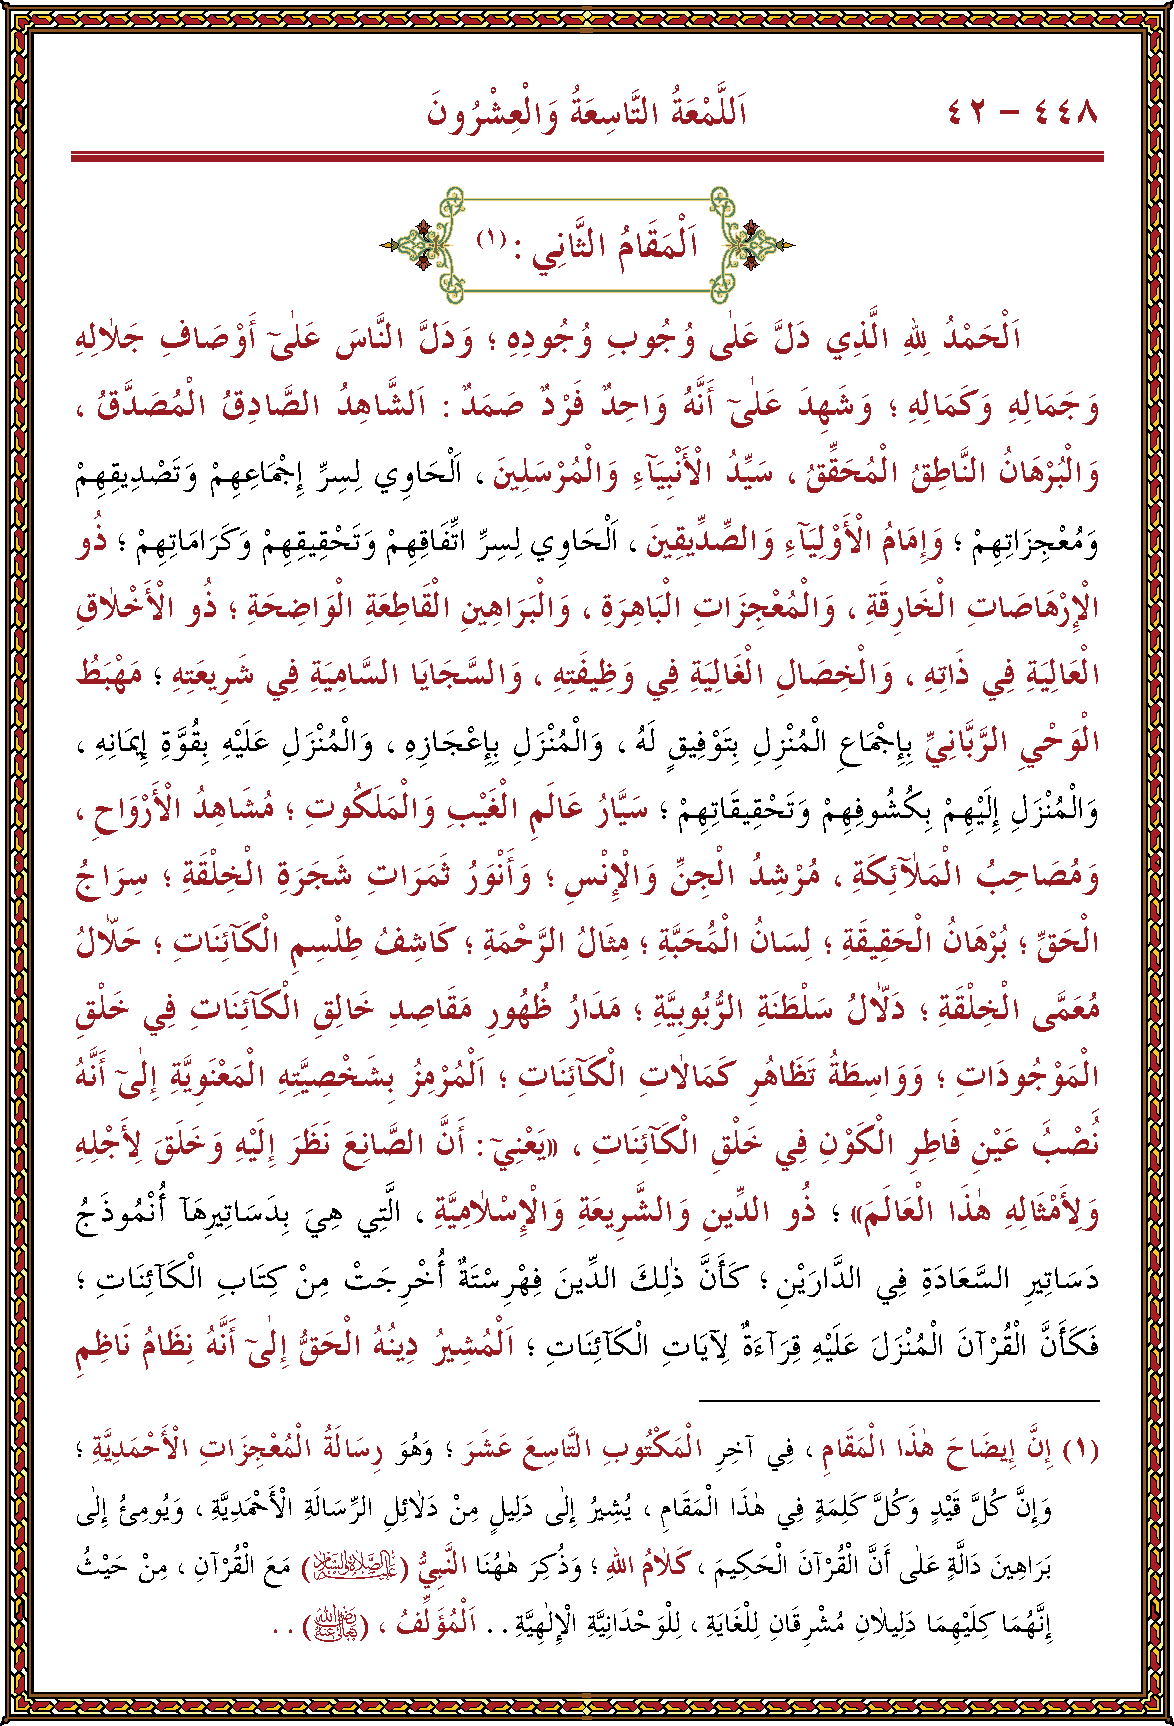 ٤٤٨ – ٤٢
اَللَّمْعَةُ التَّاسِعَةُ وَالْعِشْرُونَ
اَلْمَقَامُ الثَّانِي : (١)
اَلْحَمْدُ لِلّٰهِ الَّذِي دَلَّ عَلٰى وُجُوبِ وُجُودِهِ ؛ وَدَلَّ النَّاسَ عَلٰىٓ أَوْصَافِ جَلَالِهِ
وَجَمَالِهِ وَكَمَالِهِ ؛ وَشَهِدَ عَلٰىٓ أَنَّهُ وَاحِدٌ فَرْدٌ صَمَدٌ : اَلشَّاهِدُ الصَّادِقُ الْمُصَدَّقُ ،
وَالْبُرْهَانُ النَّاطِقُ الْمُحَقِّقُ ، سَيِّدُ الْأَنْبِيَآءِ وَالْمُرْسَلِينَ ، اَلْحَاوِي لِسِرِّ إِجْمَاعِهِمْ وَتَصْدِيقِهِمْ
وَمُعْجِزَاتِهِمْ ؛ وَإِمَامُ الْأَوْلِيَآءِ وَالصِّدِّيقِينَ ، اَلْحَاوِي لِسِرِّ اتِّفَاقِهِمْ وَتَحْقِيقِهِمْ وَكَرَامَاتِهِمْ ؛ ذُو
الْإِرْهَاصَاتِ الْخَارِقَةِ ، وَالْمُعْجِزَاتِ الْبَاهِرَةِ ، وَالْبَرَاهِينِ الْقَاطِعَةِ الْوَاضِحَةِ ؛ ذُو الْأَخْلَاقِ
الْعَالِيَةِ فِي ذَاتِهِ ، وَالْخِصَالِ الْغَالِيَةِ فِي وَظِيفَتِهِ ، وَالسَّجَايَا السَّامِيَةِ فِي شَرِيعَتِهِ ؛ مَهْبَطُ
الْوَحْيِ الرَّبَّانِيِّ بِإِجْمَاعِ الْمُنْزِلِ بِتَوْفِيقٍ لَهُ ، وَالْمُنْزَلِ بِإِعْجَازِهِ ، وَالْمُنْزَلِ عَلَيْهِ بِقُوَّةِ إِيمَانِهِ ،
وَالْمُنْزَلِ إِلَيْهِمْ بِكُشُوفِهِمْ وَتَحْقِيقَاتِهِمْ ؛ سَيَّارُ عَالَمِ الْغَيْبِ وَالْمَلَكُوتِ ؛ مُشَاهِدُ الْأَرْوَاحِ ،
وَمُصَاحِبُ الْمَلَآئِكَةِ ، مُرْشِدُ الْجِنِّ وَالْإِنْسِ ؛ وَأَنْوَرُ ثَمَرَاتِ شَجَرَةِ الْخِلْقَةِ ؛ سِرَاجُ
الْحَقِّ ؛ بُرْهَانُ الْحَقِيقَةِ ؛ لِسَانُ الْمَحَبَّةِ ؛ مِثَالُ الرَّحْمَةِ ؛ كَاشِفُ طِلْسِمِ الْكَآئِنَاتِ ؛ حَلَّالُ
مُعَمَّى الْخِلْقَةِ ؛ دَلَّالُ سَلْطَنَةِ الرُّبُوبِيَّةِ ؛ مَدَارُ ظُهُورِ مَقَاصِدِ خَالِقِ الْكَآئِنَاتِ فِي خَلْقِ
الْمَوْجُودَاتِ ؛ وَوَاسِطَةُ تَظَاهُرِ كَمَالَاتِ الْكَآئِنَاتِ ؛ اَلْمُرْمِزُ بِشَخْصِيَّتِهِ الْمَعْنَوِيَّةِ إِلٰىٓ أَنَّهُ
نُصْبُ عَيْنِ فَاطِرِ الْكَوْنِ فِي خَلْقِ الْكَآئِنَاتِ ، «يَعْنِيٓ : أَنَّ الصَّانِعَ نَظَرَ إِلَيْهِ وَخَلَقَ لِأَجْلِهِ
وَلِأَمْثَالِهِ هٰذَا الْعَالَمَ» ؛ ذُو الدِّينِ وَالشَّرِيعَةِ وَالْإِسْلَامِيَّةِ ، الَّتِي هِيَ بِدَسَاتِيرِهَآ أُنْمُوذَجُ
دَسَاتِيرِ السَّعَادَةِ فِي الدَّارَيْنِ ؛ كَأَنَّ ذٰلِكَ الدِّينَ فِهْرِسْتَةٌ أُخْرِجَتْ مِنْ كِتَابِ الْكَآئِنَاتِ ؛
فَكَأَنَّ الْقُرْآنَ الْمُنْزَلَ عَلَيْهِ قِرَآءَةٌ لِآيَاتِ الْكَآئِنَاتِ ؛ اَلْمُشِيرُ دِينُهُ الْحَقُّ إِلٰىٓ أَنَّهُ نِظَامُ نَاظِمِ
(١) إِنَّ إِيضَاحَ هٰذَا الْمَقَامِ ، فِي آخِرِ الْمَكْتُوبِ التَّاسِعَ عَشَرَ ؛ وَهُوَ رِسَالَةُ الْمُعْجِزَاتِ الْأَحْمَدِيَّةِ ؛
وَإِنَّ كُلَّ قَيْدٍ وَكُلَّ كَلِمَةٍ فِي هٰذَا الْمَقَامِ ، يُشِيرُ إِلٰى دَلِيلٍ مِنْ دَلَائِلِ الرِّسَالَةِ الْأَحْمَدِيَّةِ ، وَيُومِئُ إِلٰى
بَرَاهِينَ دَالَّةٍ عَلٰى أَنَّ الْقُرْآنَ الْحَكِيمَ ، كَلَامُ اللّٰهِ ؛ وَذُكِرَ هٰهُنَا النَّبِيُّ (عَلَيْهِ الصَّلَاةُ وَالسَّلَامُ) مَعَ الْقُرْآنِ ، مِنْ حَيْثُ
إِنَّهُمَا كِلَيْهِمَا دَلِيلَانِ مُشْرِقَانِ لِلْغَايَةِ ، لِلْوَحْدَانِيَّةِ الْإِلٰهِيَّةِ . . اَلْمُؤَلِّفُ ، (رَضِيَ اللّٰهُ تَعَالٰى عَنْهُ) . .